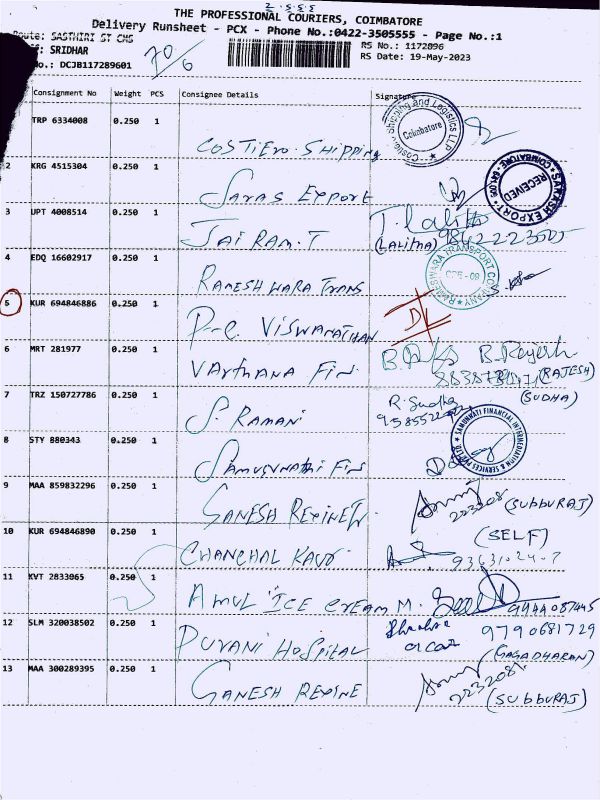 THE PROFESSIONAL COURIERS, COIMBATORE
Delivery Runsheet - PCX - Phone No.:0422-3505555 - Page No.:1
Route: SASTHIRI ST CHS
SRIDHAR
No.: DCJB117289601
70/6
RS No.: 1172896
RS Date: 19-May-2023
Consignment No Weight PCS Consignee Details Signature
TRP 6334008 0.250 1 COSTIERO SHIPPING
Costiero Shipping and Logistics LLP Coimbatore
2 KRG 4515304 0.250 1 SARAS EXPORT
SARASH EXPORT RECEIVED COIMBATORE - 641 005
3 UPT 4008514 0.250 1 JAIRAM.T T. Lalitha
(Lalitha)
4 EDQ 16602917 0.250 1 RAMESHWARA TRANS
RAMESHWARA TRANSPORT COMPANY CBE-08
5 KUR 694846886 0.250 1 P.C. VISWANATHAN DL
6 MRT 281977 0.250 1 VARTHANA FIN B. Rajesh
(RAJESH)
7 TRZ 150727786 0.250 1 S. RAMANI R. Sudha (SUDHA)
8 STY 880343 0.250 1 SAMUNNATHI FIN
SAMUNNATI FINANCIAL INTERMEDIATION & SERVICES PVT LTD
9 MAA 859832296 0.250 1 GANESH REXINE (SUBBURAJ)
10 KUR 694846890 0.250 1 CHANCHAL KAUR (SELF)
11 KVT 2833065 0.250 1 AMUL ICE CREAM M. 9944087445
12 SLM 320038502 0.250 1 PURANI HOSPITAL 9790681729
(GAGADHARAN)
13 MAA 300289395 0.250 1 GANESH REXINE
(SUBBURAJ)